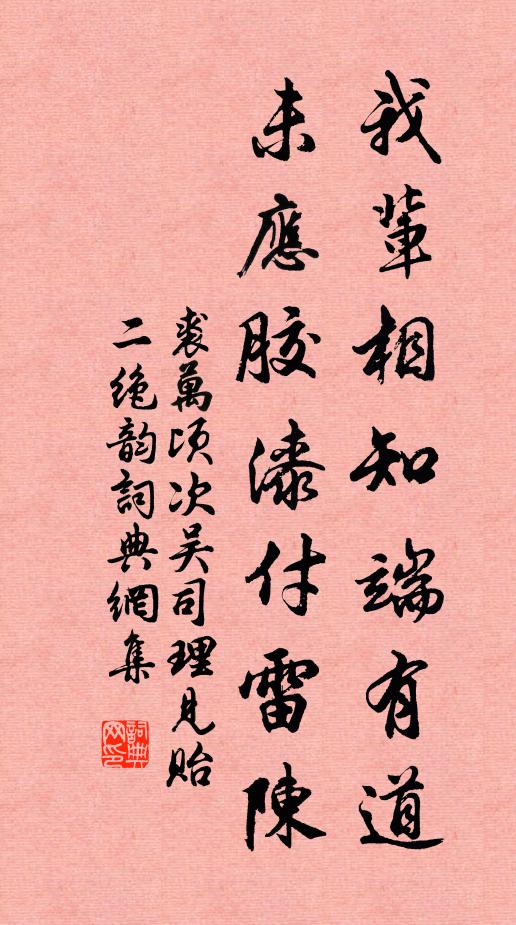 我輩相知端有道
未應膠漆付雷陳
裘萬頃次吳司理見貽
二絕韵詞典網集
詞典
网印